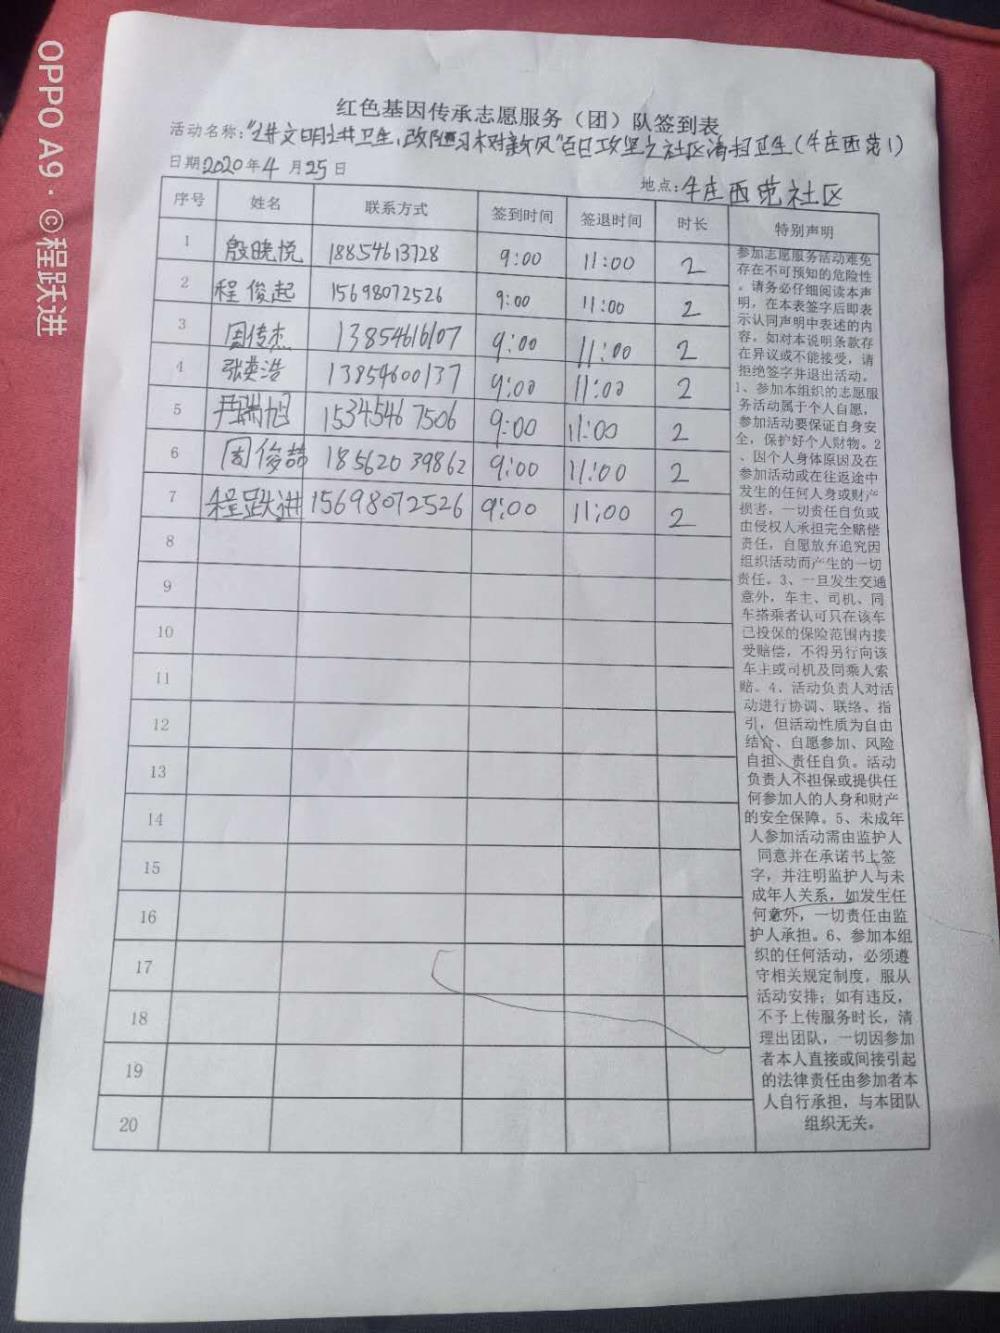 红色基因传承志愿服务（团）队签到表
活动名称：“讲文明讲卫生，改陋习树新风”百日攻坚之社区清扫卫生（牛庄西范1）
日期2020年4月25日
地点：牛庄西范社区
序号 姓名 联系方式 签到时间 签退时间 时长 特别声明
1 殷晓悦 18854613728 9:00 11:00 2
2 程俊起 15698072526 9:00 11:00 2
3 周传杰 13854616107 9:00 11:00 2
4 张英浩 13854600137 9:00 11:00 2
5 尹瑞旭 15345467506 9:00 11:00 2
6 周俊喆 18562039862 9:00 11:00 2
7 程跃进 15698072526 9:00 11:00 2
8
9
10
11
12
13
14
15
16
17
18
19
20
参加志愿服务活动难免
存在不可预知的危险性
，请务必仔细阅读本声
明，在本表签字后即表
示认同声明中表述的内
容。如对本说明条款存
在异议或不能接受，请
拒绝签字并退出活动。
1、参加本组织的志愿服
务活动属于个人自愿，
参加活动要保证自身安
全，保护好个人财物。2
、因个人身体原因及在
参加活动或在往返途中
发生的任何人身或财产
损害，一切责任自负或
由侵权人承担完全赔偿
责任，自愿放弃追究因
组织活动而产生的一切
责任。3、一旦发生交通
意外，车主、司机、同
车搭乘者认可只在该车
已投保的保险范围内接
受赔偿，不得另行向该
车主或司机及同乘人索
赔。4、活动负责人对活
动进行协调、联络、指
引，但活动性质为自由
结合、自愿参加、风险
自担、责任自负。活动
负责人不担保或提供任
何参加人的人身和财产
的安全保障。5、未成年
人参加活动需由监护人
同意并在承诺书上签
字，并注明监护人与未
成年人关系，如发生任
何意外，一切责任由监
护人承担。6、参加本组
织的任何活动，必须遵
守相关规定制度，服从
活动安排；如有违反，
不予上传服务时长，清
理出团队，一切因参加
者本人直接或间接引起
的法律责任由参加者本
人自行承担，与本团队
组织无关。
OPPO A9 · ©程跃进